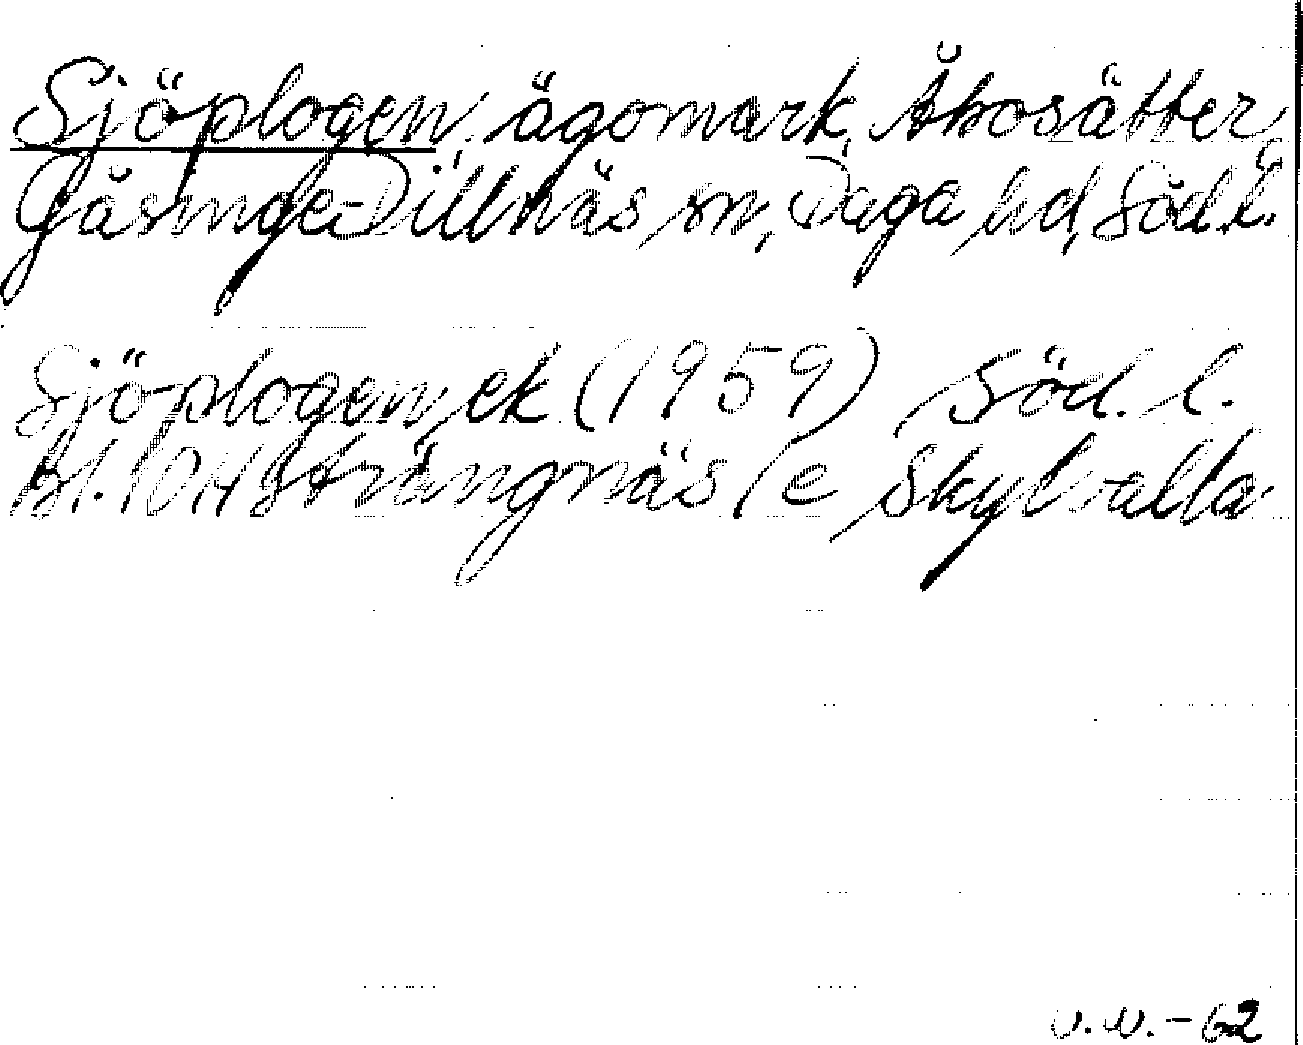 Sjöplogen, ägomark, Åbosätter,
Gåsinge-Dillnäs sn, Daga hd, Söd. l.
Sjöplogen, ek (1959) Söd. l.
bl. 10H Strängnäs / e Skyttvalla
v.w. - 62